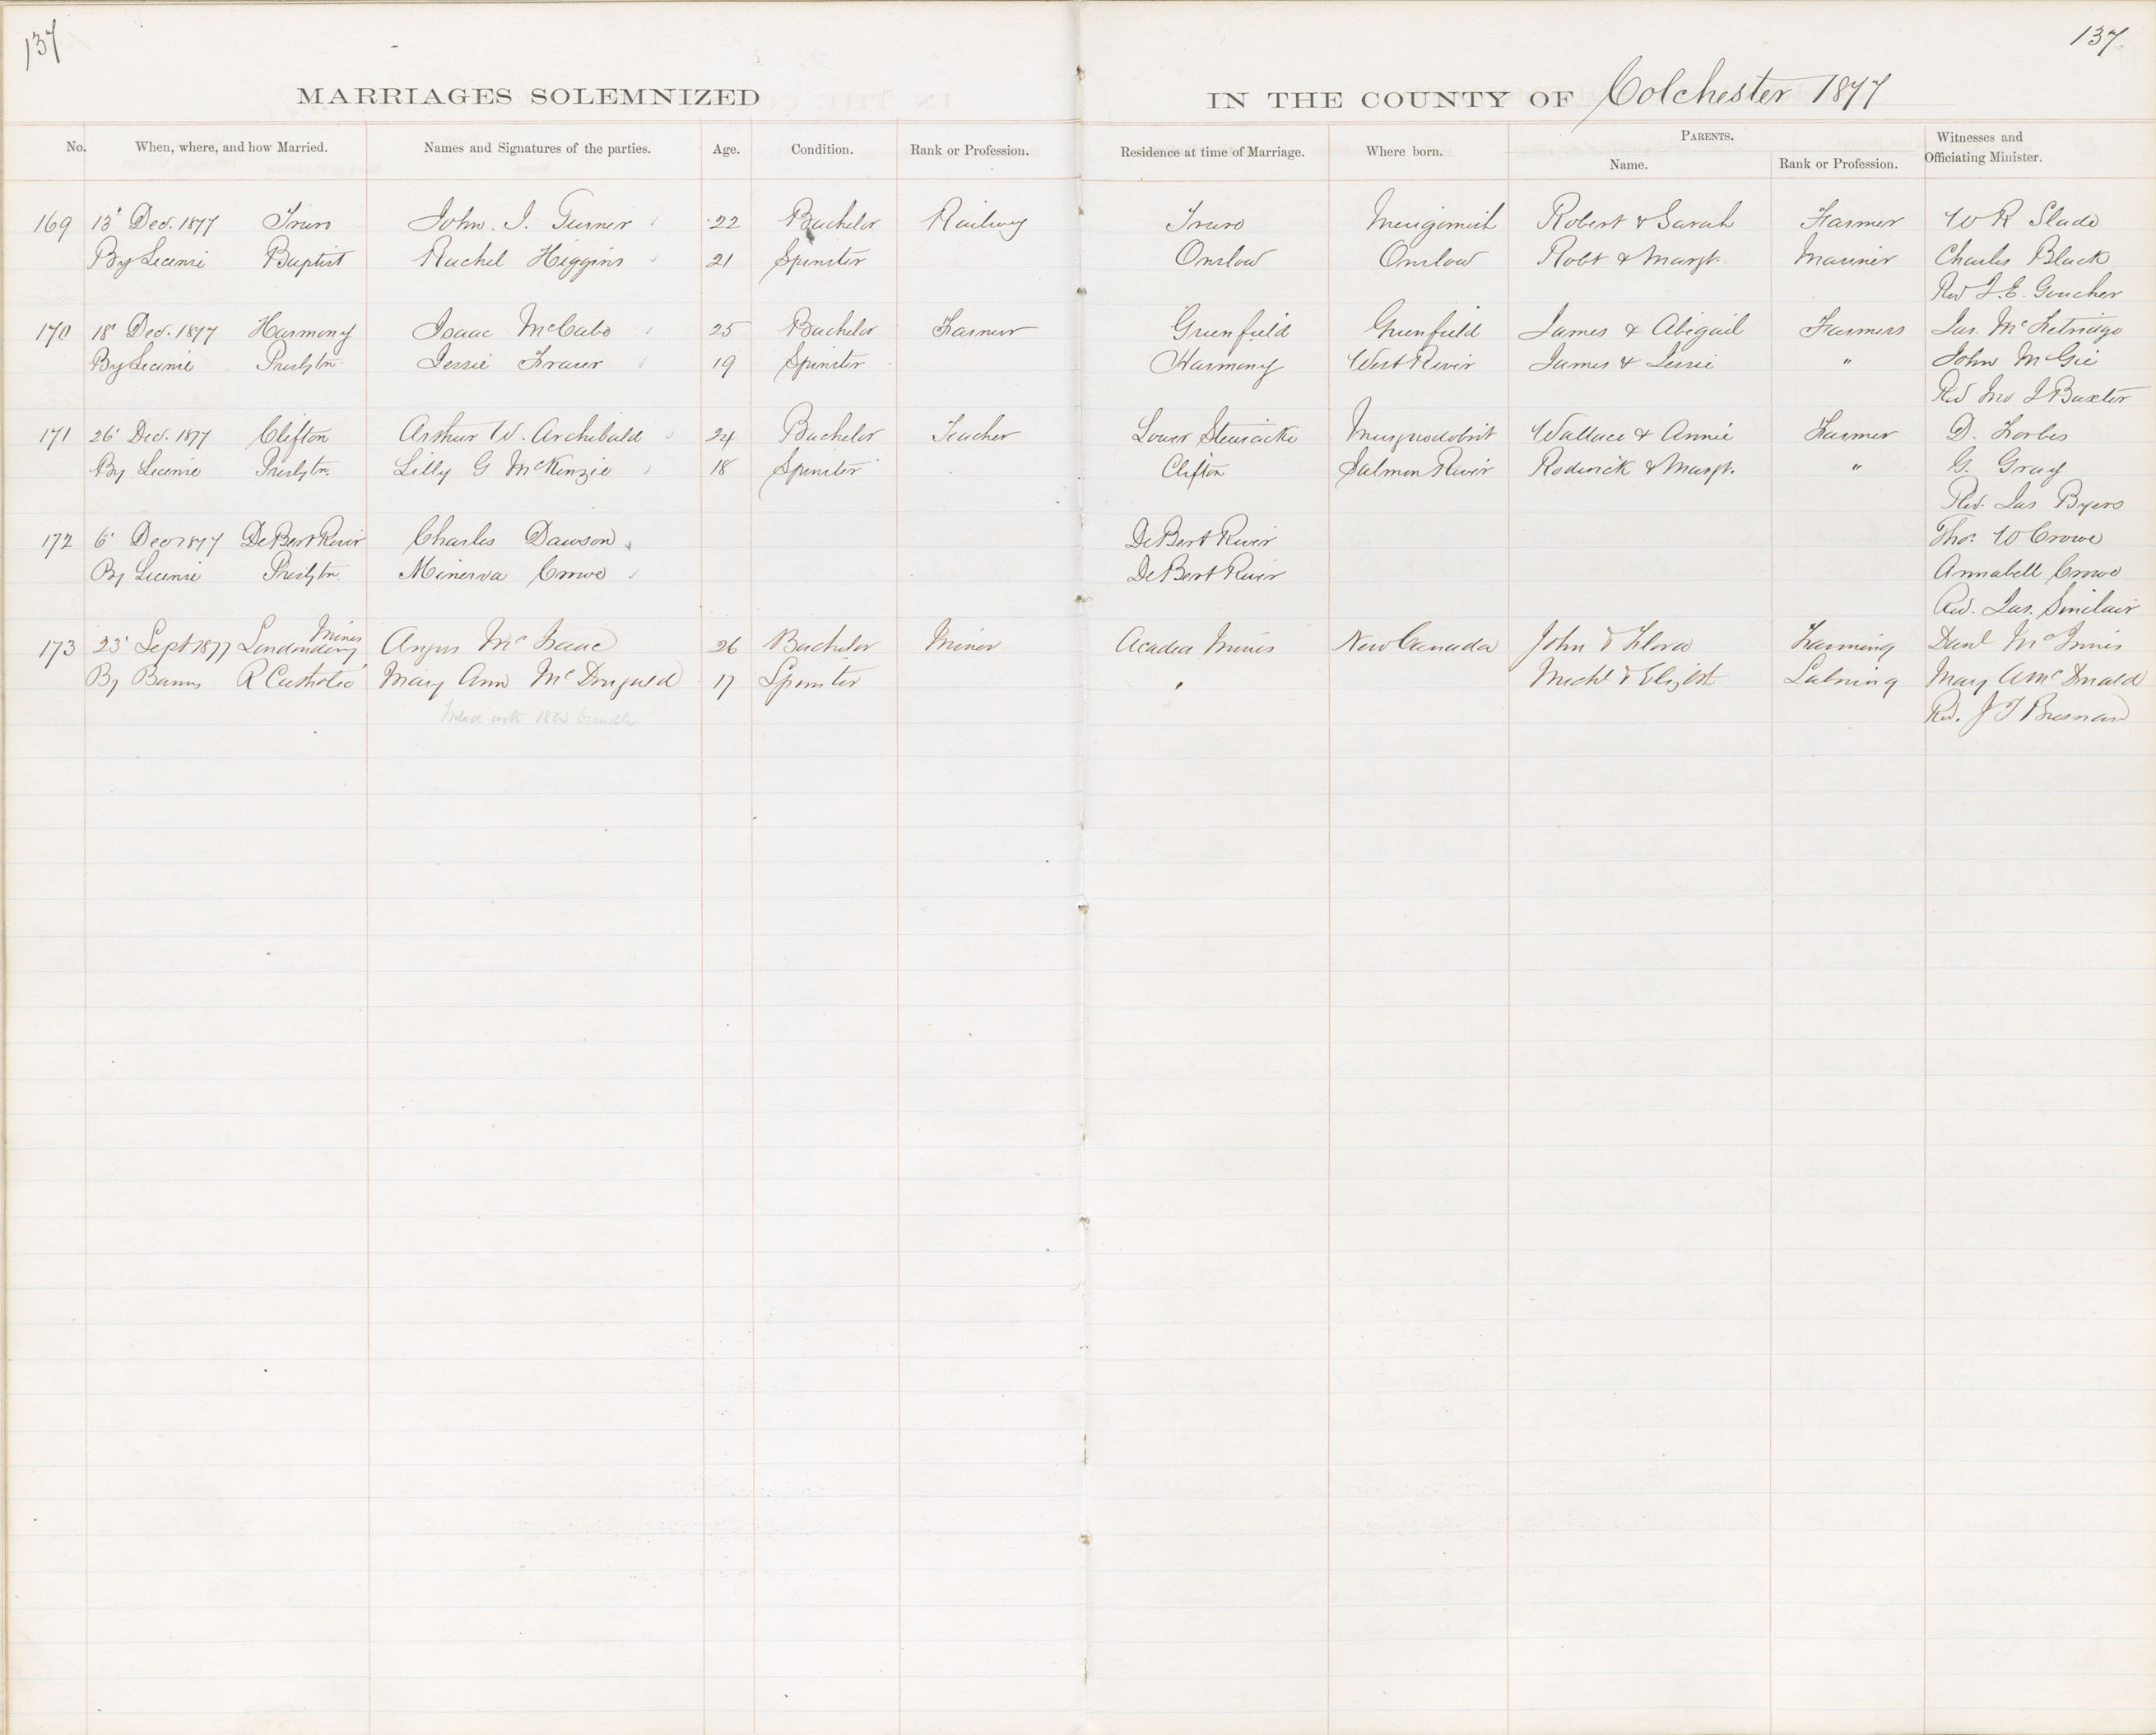 137
137
MARRIAGES SOLEMNIZED IN THE COUNTY OF Colchester 1877
No. When, where, and how Married. Names and Signatures of the parties. Age. Condition. Rank or Profession. Residence at time of Marriage. Where born. PARENTS. Name. Rank or Profession. Witnesses and Officiating Minister.
169 13' Dec. 1877 Truro John. I. Turner 22 Bachelor Railway Truro Robert & Sarah Farmer W R Slade
By License Baptist Rachel Higgins 21 Spinster Onslow Onslow Robt & Margt. Mariner Charles Black
Rev J. E. Goucher
170 18' Dec. 1877 Harmony Isaac McCabe 25 Bachelor Farmer Greenfield Greenfield James & Abigail Farmers Jas. McFetridge
By License Presbytn. Jessie Fraser 19 Spinster Harmony West River James & Jessie " John McGie
Rev Jno I Baxter
171 26' Dec. 1877 Clifton Arthur W. Archibald 24 Bachelor Teacher Lower Stewiacke Musquodobit Wallace & Annie Farmer D. Forbes
By License Presbytn. Lilly G McKenzie 18 Spinster Clifton Salmon River Roderick & Margt. " G. Gray
Rev. Jas Byers
172 6' Dec 1877 DeBert River Charles Dawson DeBert River Thos. W Crowe
By License Presbytn. Minerva Crowe DeBert River Annabell Crowe
Rev. Jas. Sinclair
173 23' Sept 1877 Londonderry Mines Angus McIsaac 26 Bachelor Miner Acadia Mines New Canada John & Flora Farming Danl McInnis
By Banns R Catholic Mary Ann McDougald 17 Spinster " Michl & Elizbt Laboring Mary A McDonald
Rev. J T Bresnan